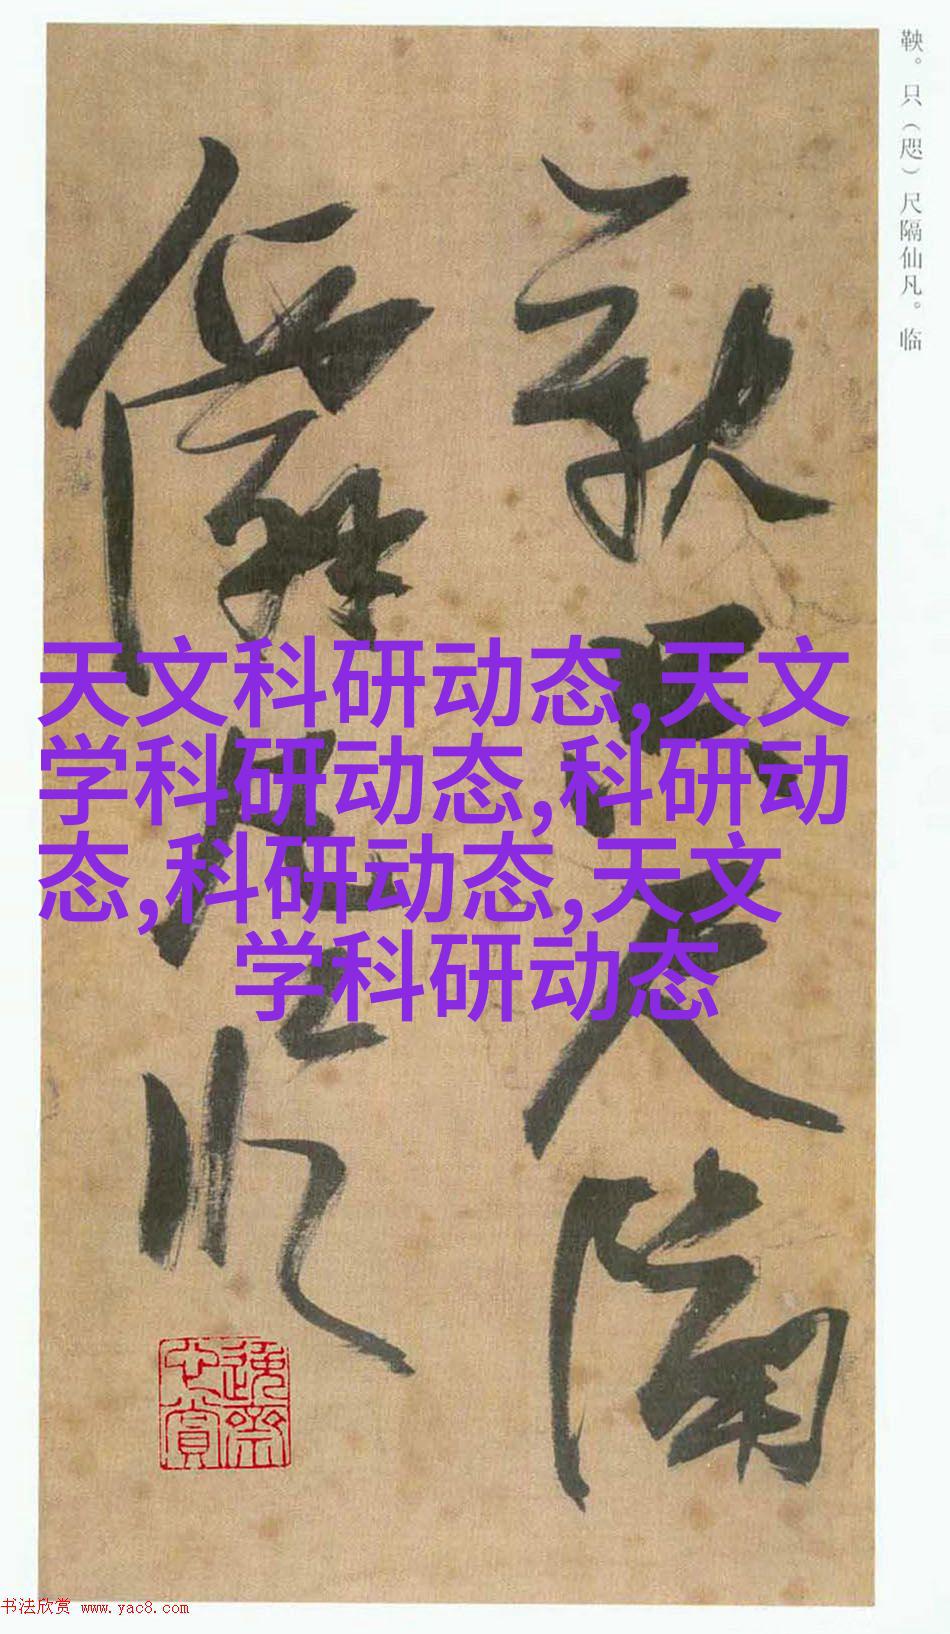 鞅。只（咫）尺隔仙凡。临
天文科研动态,天文
学科研动态,科研动
态,科研动态,天文
学科研动态
鞅只尺隔
僊凡临
书法欣赏 www.yac8.com